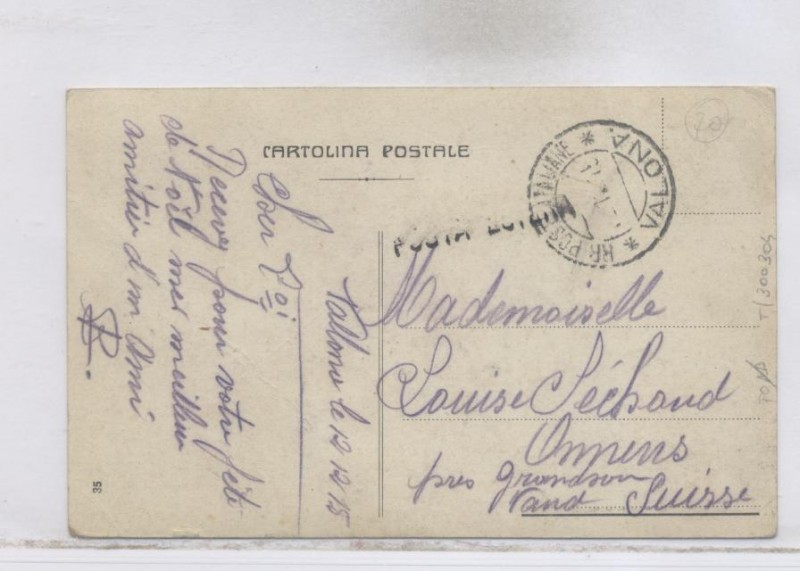 CARTOLINA POSTALE
Recevez pour votre fête
de Noël mes meilleurs
amitiés d'un Ami
Vallona le 12 12 15
VALONA
* RR POSTE ITALIANE *
POSTA ESTERA
Mademoiselle
Louise Séchaud
Onnens
près Grandson
Vaud Suisse
35
20
T/300304